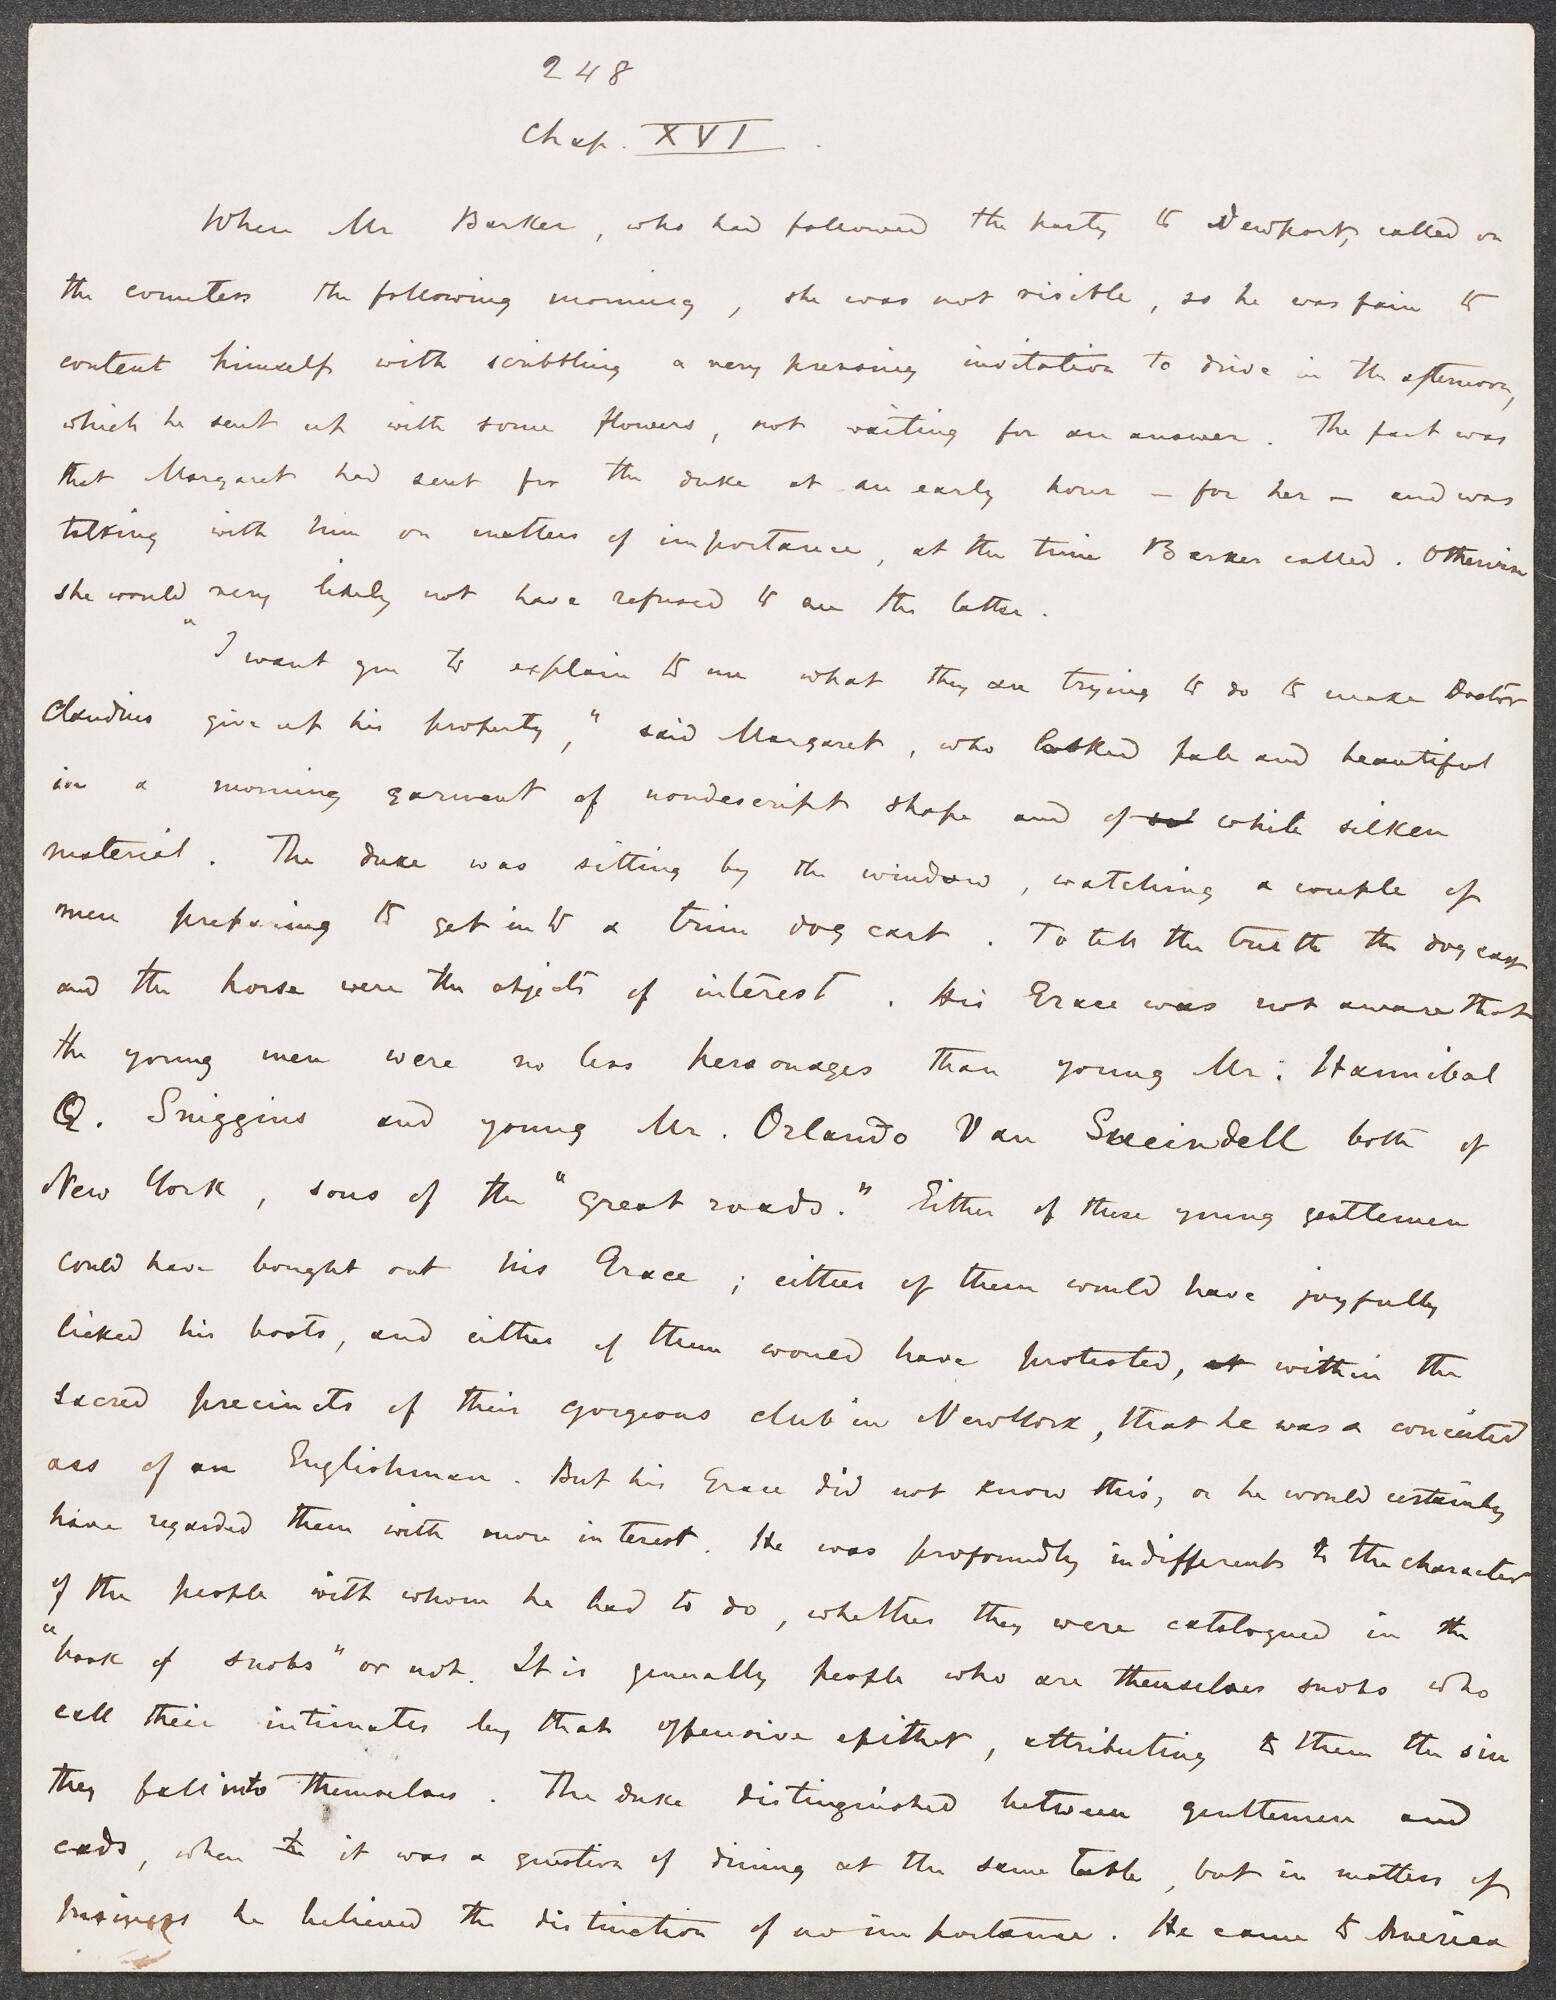 248
Chap. XVI.
When Mr Barker, who had followed the party to Newport, called on
the countess the following morning, she was not visible, so he was fain to
content himself with scribbling a very pressing invitation to drive in the afternoon,
which he sent up with some flowers, not waiting for an answer. The fact was
that Margaret had sent for the duke at an early hour – for her – and was
talking with him on matters of importance, at the time Barker called. Otherwise
she would very likely not have refused to see the latter.
"I want you to explain to me what they are trying to do to make Doctor
Claudius give up his property," said Margaret, who looked pale and beautiful
in a morning garment of nondescript shape and of white silken
material. The duke was sitting by the window, watching a couple of
men preparing to get into a trim dog cart. To tell the truth the dog cart
and the horse were the objects of interest. His Grace was not aware that
the young men were no less personages than young Mr. Hannibal
Q. Sniggins and young Mr. Orlando Van Sueindell both of
New York, sons of the "great roads." Either of these young gentlemen
could have bought out his Grace; either of them would have joyfully
licked his boots, and either of them would have protested, at within the
sacred precincts of their gorgeous club in New York, that he was a conceited
ass of an Englishman. But his Grace did not know this, or he would certainly
have regarded them with more interest. He was profoundly indifferent to the character
of the people with whom he had to do, whether they were catalogued in the
"book of snobs" or not. It is generally people who are themselves snobs who
call their intimates by that offensive epithet, attributing to them the sin
they fall into themselves. The duke distinguished between gentlemen and
cads, when it was a question of dining at the same table, but in matters of
business he believed the distinction of no importance. He came to America